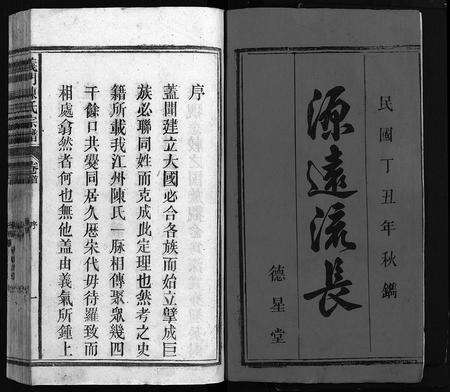 民國丁丑年秋鐫
源遠流長
德星堂
序
蓋聞建立大國必合各族而始立擘成巨
族必聯同姓而克成此定理也然考之史
籍所載我江州陳氏一脉相傳聚衆幾四
千餘口共爨同居久歷宋代毋待羅致而
相處翕然者何也無他蓋由義氣所鍾上
義門陳氏宗譜
卷首
序
一